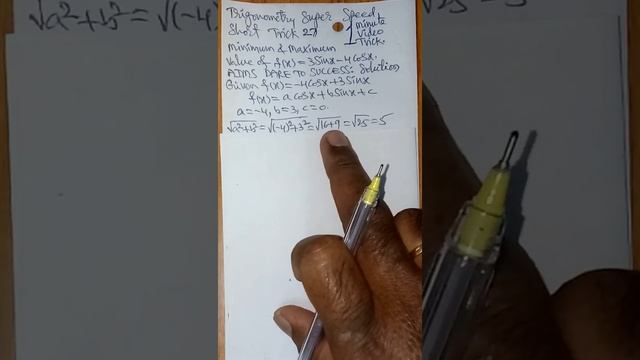 Trigonometry Super Speed
Short Trick 27 1 minute Video Trick.
Minimum & Maximum
Value of f(x) = 3Sinx - 4Cosx.
AIMS DARE TO SUCCESS: Solution
Given f(x) = -4Cosx + 3Sinx
f(x) = a cosx + b Sinx + c
a = -4, b = 3, c = 0.
√a²+b² = √(-4)²+3² = √16+9 = √25 = 5